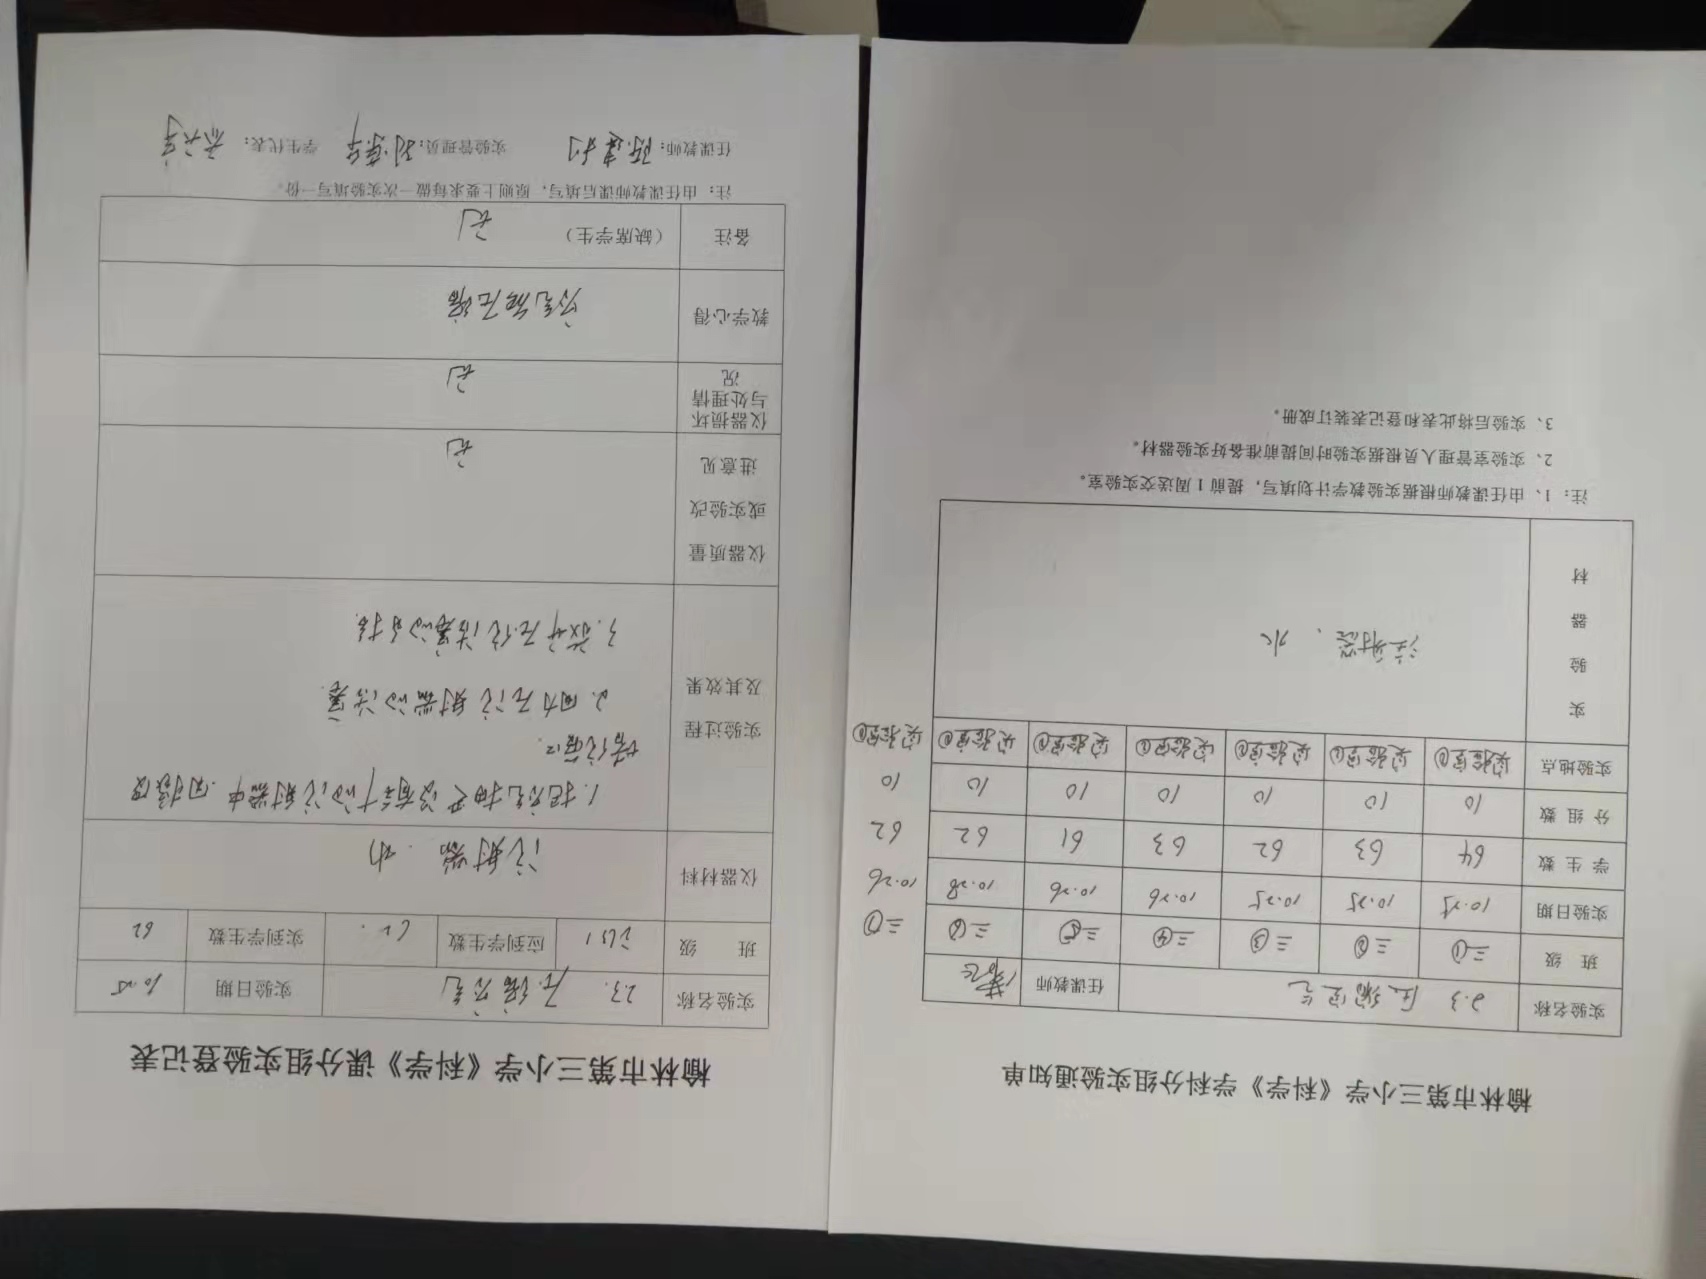 榆林市第三小学《科学》学科分组实验通知单
实验名称 2.3 压缩空气 任课教师
班 级 三① 三② 三③ 三④ 三⑤ 三⑥ 三⑦
实验日期 10.25 10.25 10.25 10.26 10.26 10.28 10.26
学 生 数 64 63 62 63 61 62 62
分 组 数 10 10 10 10 10 10 10
实验地点 实验室① 实验室① 实验室① 实验室① 实验室① 实验室① 实验室①
实验器材 注射器、水
注：1、由任课教师根据实验教学计划填写，提前1周送交实验室。
2、实验室管理人员根据实验时间提前准备好实验器材。
3、实验后将此表和登记表装订成册。
榆林市第三小学《科学》课分组实验登记表
实验名称 2.3. 压缩空气 实验日期 10.25
班 级 应到学生数 62. 实到学生数 62
仪器材料 注射器.水
实验过程及其效果
1.把空气抽进没有针的注射器中.用橡皮
堵住管口.
2.用力压注射器的活塞.
3.放开压住活塞的手指.
仪器质量或实验改进意见 无
仪器损坏与处理情况 无
教学心得 空气能压缩
备注 （缺席学生） 无
注：由任课教师课后填写，原则上要求每做一次实验填写一份。
任课教师： 实验管理员： 学生代表：